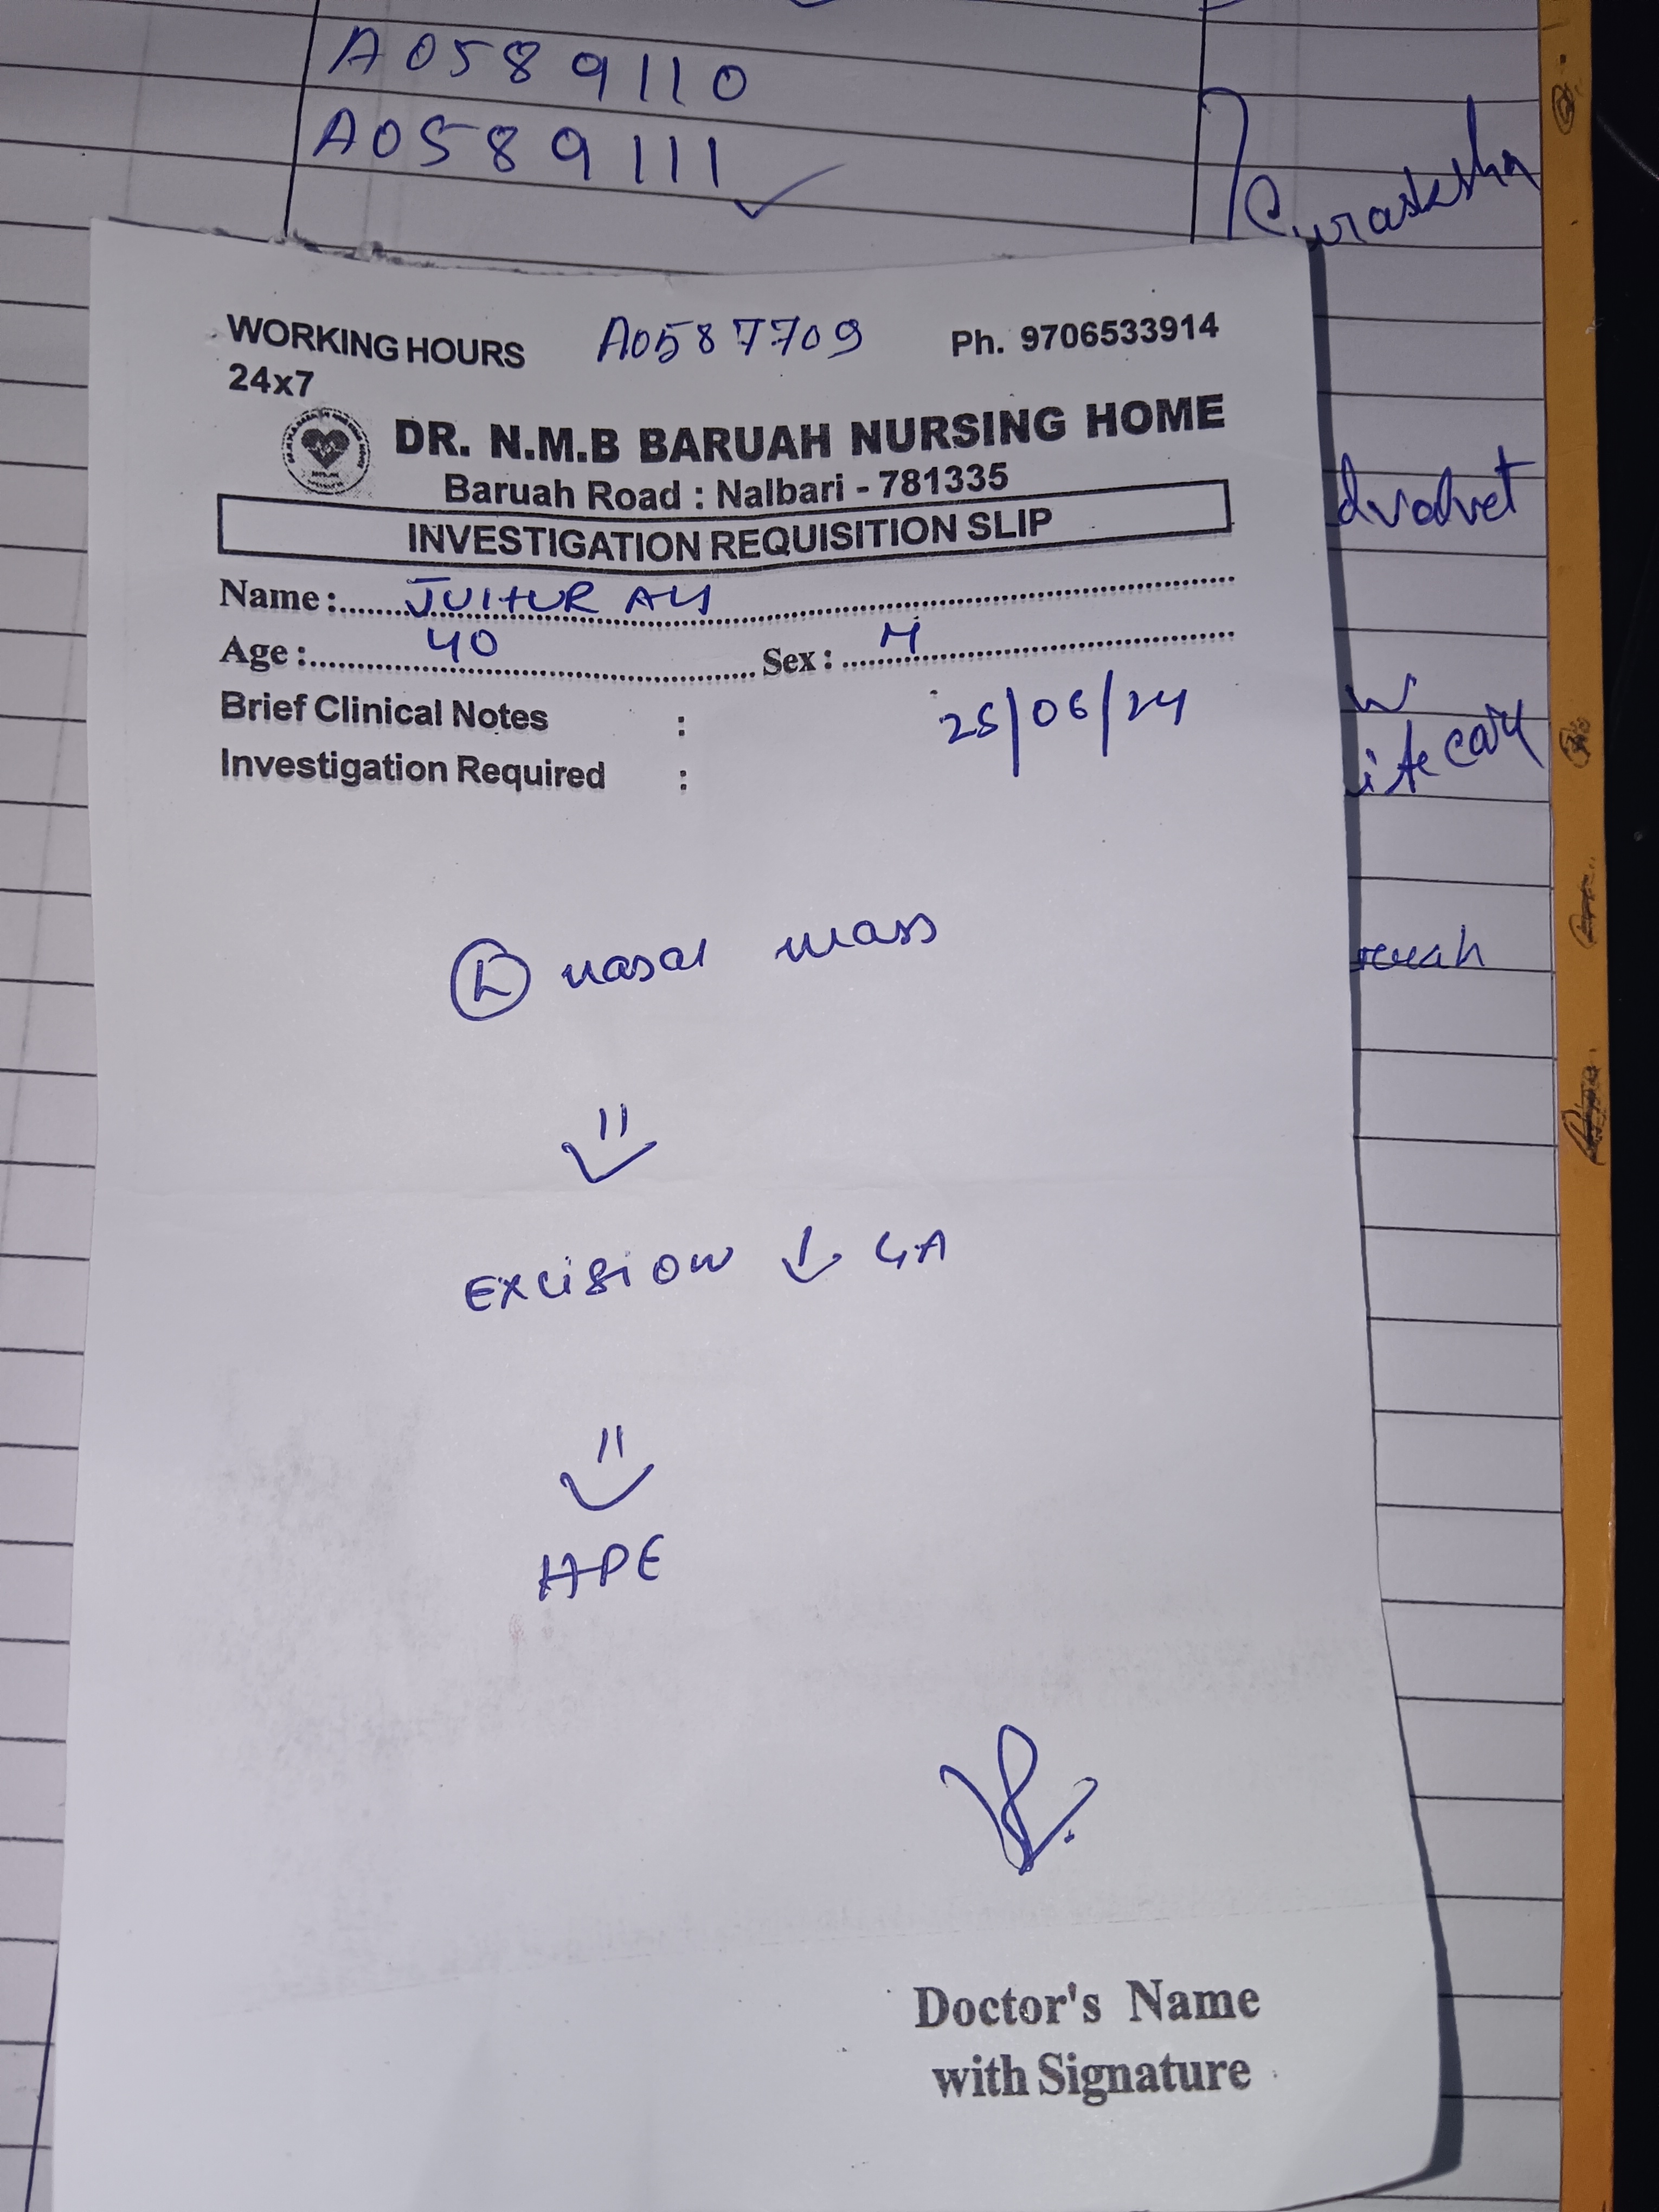 A0589110
A0589111
Suraksha
WORKING HOURS A0587709 Ph. 9706533914
24x7
DR. N.M.B BARUAH NURSING HOME
Baruah Road : Nalbari - 781335
INVESTIGATION REQUISITION SLIP
Name : JUITUR ALI
Age : 40 Sex : M
Brief Clinical Notes : 25/06/24
Investigation Required :
(L) nasal mass
Excision ↓ GA
HPE
Doctor's Name
with Signature